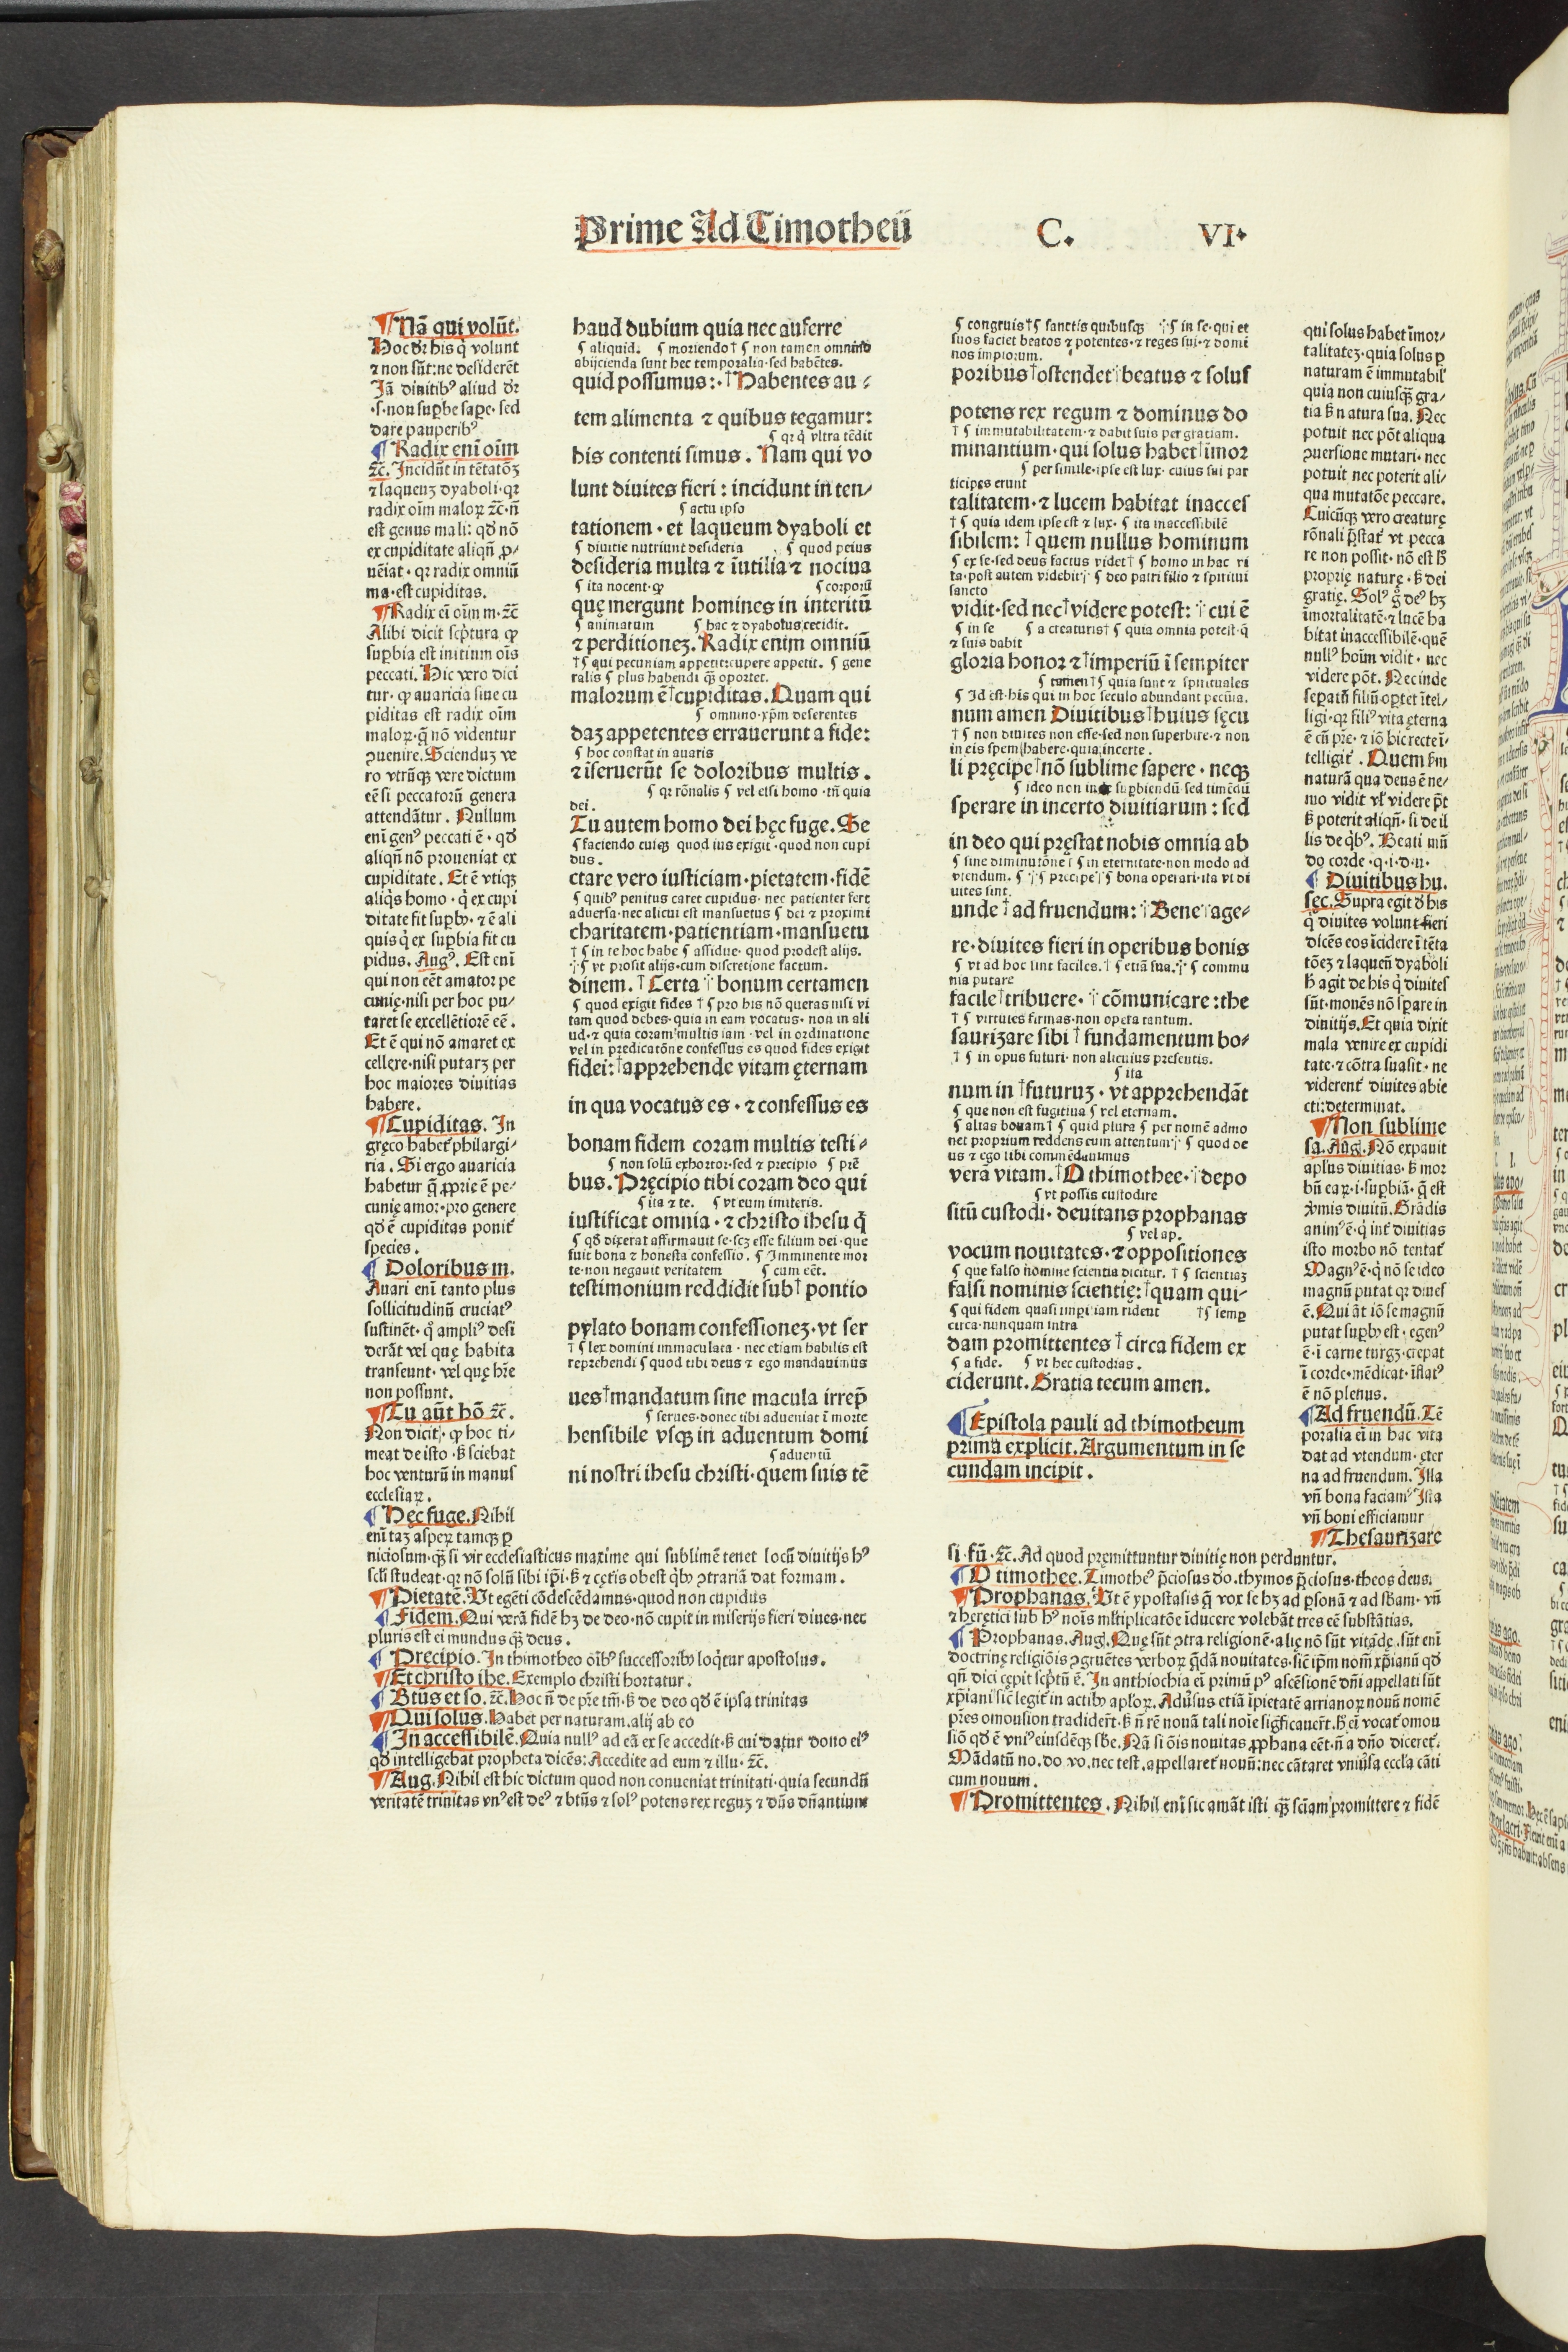 Prime Ad Timotheū C. VI
¶ Nā qui volūt.
Hoc dr̄ his q̇ volunt
⁊ non sūt: ne desiderēt
Jā diuitibꝰ aliud dr̄
·s· non supbe sape· sed
dare pauperibꝰ
¶ Radix eni oīm
⁊c̄. Incidūt in tētatōꝫ
⁊ laqueuꝫ dyaboli· qꝛ
radix oīm maloꝝ ⁊c̄· n̄
est genus mali: qd̄ nō
ex cupiditate aliqn̄ ꝓ-
ueīat· qꝛ radix omniū
ma· est cupiditas.
¶ Radix eī oīm m· ⁊c̄
Alibi dicit scptura ꝙ
supbia est initium oīs
peccati. Hic vero dici
tur· ꝙ auaricia siue cu
piditas est radix oīm
maloꝝ· q̄ nō videntur
ꝯuenire. Scienduꝫ ve
ro vtrūqꝫ vere dictum
eē si peccatorū genera
attendātur. Nullum
enī genꝰ peccati ē· qd̄
aliqn̄ nō proueniat ex
cupiditate. Et ē vtiqꝫ
aliq̇s homo· q̇ ex cupi
ditate fit supbꝰ· ⁊ ē ali
quis q̇ ex supbia fit cu
pidus. Augꝰ. Est enī
qui non eēt amator pe
cunię· nisi per hoc pu-
taret se excellētiorē eē.
Et ē qui nō amaret ex
cellere· nisi putarꝫ per
hoc maiores diuitias
habere.
¶ Cupiditas. In
gręco habet philargi-
ria. Si ergo auaricia
habetur q̄ ꝓprie ē pe-
cunię amor· pro genere
qd̄ ē cupiditas ponit
species.
¶ Doloribus m.
Auari enī tanto plus
sollicitudinū cruciatꝰ
sustinēt· q̊ ampliꝰ desi
derāt vel quę habita
transeunt· vel quę hr̄e
non possunt.
¶ Tu aūt hō ⁊c̄.
Non dicit· ꝙ hoc ti-
meat de isto· s̄ sciebat
hoc venturū in manus
ecclesiaꝝ.
¶ Hęc fuge. Nihil
enī taꝫ aspeꝝ tamqꝫ ꝑ
niciosum· qꝫ si vir ecclesiasticus maxime qui sublimē tenet locū diuitijs hꝰ
scl̄i studeat· qꝛ nō solū sibi ip̄i· s̄ ⁊ cętis obest q̇bꝰ ꝯtrariā dat formam.
¶ Pietatē. Vt egēti cōdescēdamus· quod non cupidus
¶ Fidem. Qui verā fidē hꝫ de deo· nō cupit in miserijs fieri diues· nec
pluris est ei mundus qꝫ deus.
¶ Precipio. In thimotheo oībꝰ successoribꝰ loq̇tur apostolus.
¶ Et christo ihe. Exemplo christi hortatur.
¶ Btūs et so. ⁊c̄. Hoc n̄ de pr̄e tm̄· s̄ de deo qd̄ ē ipsa trinitas
¶ Qui solus. Habet per naturam. alij ab eo
¶ In accessibilē. Quia nullꝰ ad eā ex se accedit· s̄ cui datur dono eiꝰ
qd̄ intelligebat propheta dicēs: Accedite ad eum ⁊ illu· ⁊c̄.
¶ Aug. Nihil est hic dictum quod non conueniat trinitati· quia secundū
veritatē trinitas vnꝰ est deꝰ ⁊ btūs ⁊ solꝰ potens rex reguꝫ ⁊ dn̄s dn̄antium
haud dubium quia nec auferre
¶ aliquid. ¶ moriendo† ¶ non tamen omnino
abijcienda sunt hec temporalia· sed habētes.
quid possumus:· †Habentes au-
tem alimenta ⁊ quibus tegamur:
¶ qꝛ q̇ vltra tēdit
his contenti simus. Nam qui vo
lunt diuites fieri: incidunt in ten-
¶ actu ipso
tationem· et laqueum dyaboli et
¶ diuitie nutriunt desideria ¶ quod peius
desideria multa ⁊ īutilia ⁊ nociua
¶ ita nocent· ꝙ ¶ corporū
quę mergunt homines in interitū
¶ animatum ¶ hac ⁊ dyabolus cecidit.
⁊ perditioneꝫ. Radix enim omniū
†¶ qui pecuniam appetit: cupere appetit. ¶ gene
ralis ¶ plus habendi qꝫ oportet.
malorum ē†cupiditas. Quam qui
¶ omnino· xp̄m deserentes
daꝫ appetentes errauerunt a fide:
¶ hoc constat in auaris
⁊ īseruerūt se doloribus multis.
¶ qꝛ rōnalis ¶ vel etsi homo· tn̄ quia
dei.
Tu autem homo dei hęc fuge. Se
¶ faciendo cuiqꝫ quod ius exigit· quod non cupi
dus.
ctare vero iusticiam· pietatem· fidē
¶ quibꝰ penitus caret cupidus· nec patienter fert
aduersa· nec alicui est mansuetus ¶ dei ⁊ proximi
charitatem· patientiam· mansuetu
†¶ in te hoc habe ¶ assidue· quod prodest alijs.
¶ vt prosit alijs· cum discretione factum.
dinem. †Certa bonum certamen
¶ quod exigit fides †¶ pro his nō queras nisi vi
tam quod debes· quia in eam vocatus· non in ali
ud· ⁊ quia coram multis iam· vel in ordinatione
vel in predicatōne confessus es quod fides exigit
fidei: †apprehende vitam ęternam
in qua vocatus es· ⁊ confessus es
bonam fidem coram multis testi-
¶ non solū exhortor· sed ⁊ precipio ¶ prē
bus. Pręcipio tibi coram deo qui
¶ ita ⁊ te. ¶ vt eum imiteris.
iustificat omnia· ⁊ christo ihesu q̇
¶ qd̄ dixerat affirmauit se· sęꝫ esse filium dei· que
fuit bona ⁊ honesta confessio. ¶ Imminente mor
te· non negauit veritatem ¶ cum eēt.
testimonium reddidit sub† pontio
pylato bonam confessioneꝫ· vt ser
†¶ lex domini immaculata· nec etiam habilis est
reprehendi ¶ quod tibi deus ⁊ ego mandauimus
ues†mandatum sine macula irrep̄
¶ serues· donec tibi adueniat ī morte
hensibile vsqꝫ in aduentum domi
¶ aduentū
ni nostri ihesu christi· quem suis tē
¶ congruis†¶ sanctis quibusqꝫ ¶ in se· qui et
suos faciet beatos ⁊ potentes· ⁊ reges sui· ⁊ domi
nos impiorum.
poribus†ostendet beatus ⁊ solus
potens rex regum ⁊ dominus do
†¶ immutabilitatem· ⁊ dabit suis per gratiam.
minantium· qui solus habet īmor
¶ per simile· ipse est lux· cuius sui par
ticipes erunt
talitatem· ⁊ lucem habitat inacces
†¶ quia idem ipse est ⁊ lux· ¶ ita inaccessibilē
sibilem: †quem nullus hominum
¶ ex se· sed deus factus videt†¶ homo in hac vi
ta· post autem videbit ¶ deo patri filio ⁊ spiritui
sancto
vidit· sed nec†videre potest: cui ē
¶ in se ¶ a creaturis†¶ quia omnia potest· q̄
⁊ suis dabit
gloria honor ⁊†imperiū ī sempiter
¶ tamen†¶ quia sunt ⁊ spirituales
¶ Id est· his qui in hoc seculo abundant pecūia.
num amen Diuitibus†huius sęcu
†¶ non diuites non esse· sed non superbire· ⁊ non
in eis spem habere· quia incerte.
li pręcipe nō sublime sapere· neqꝫ
¶ ideo non in supbiendū sed timēdū
sperare in incerto diuitiarum: sed
in deo qui pręstat nobis omnia ab
¶ sine diminutōne ¶ in eternitate· non modo ad
vtendum. ¶ precipe ¶ bona operari· ita vt di
uites sint.
unde†ad fruendum: Bene age-
re· diuites fieri in operibus bonis
¶ vt ad hoc sint faciles. †¶ etiā sua. ¶ commu
nia putare
facile†tribuere· cōmunicare: the
†¶ virtutes firmas· non opera tantum.
saurizare sibi†fundamentum bo-
†¶ in opus futuri· non alicuius presentis.
¶ ita
num in†futuruꝫ· vt apprehendāt
¶ que non est fugitiua ¶ vel eternam.
¶ alias bonam†¶ quid plura ¶ per nomē admo
net proprium reddens eum attentum ¶ quod de
us ⁊ ego tibi commēdauimus
verā vitam. †O thimothee· depo
¶ vt possis custodire
sitū custodi· deuitans prophanas
¶ vel ap.
vocum nouitates· ⁊ oppositiones
¶ que falso nomine scientia dicitur. †¶ scientiaꝫ
falsi nominis scientię: †quam qui-
¶ qui fidem quasi imperitiam rident †¶ semp
circa· nunquam intra
dam promittentes†circa fidem ex
¶ a fide. ¶ vt hec custodias.
ciderunt. Gratia tecum amen.
¶ Epistola pauli ad thimotheum
prima explicit. Argumentum in se
cundam incipit.
qui solus habet īmor-
talitateꝫ· quia solus ꝑ
naturam ē immutabil'
quia non cuiusqꝫ gra-
tia s̄ natura sua. Nec
potuit nec pōt aliqua
ꝯuersione mutari· nec
potuit nec poterit ali-
qua mutatōe peccare.
Cuicūqꝫ vero creaturę
rōnali p̄stat vt pecca
re non possit· nō est h̄
proprię naturę· s̄ dei
gratię. Solꝰ g̊ deꝰ hꝫ
īmortalitatē· ⁊ lucē ha
bitat inaccessibilē· quē
nullꝰ hoīm vidit· nec
videre pōt. Nec inde
sepatū filiū optet ītel-
ligi· qꝛ filiꝰ vita ęterna
ē cū pr̄e· ⁊ iō hic recte ī-
telligit. Quem s̄m
naturā qua deus ē ne-
mo vidit vl' videre p̄t
s̄ poterit aliqn̄· si de il
lis de q̇bꝰ. Beati mū
do corde· q· i· d· u·
¶ Diuitibus hu.
sęc. Supra egit d̄ his
q̇ diuites volunt fieri
dicēs eos īcidere ī tēta
tōeꝫ ⁊ laqueū dyaboli
h̄ agit de his q̇ diuites
sūt· monēs nō sperare in
diuitijs. Et quia dixit
mala venire ex cupidi
tate· ⁊ cōtra suasit· ne
viderent diuites abie
cti: determinat.
¶ Non sublime
sa. Aug. Nō expauit
apl'us diuitias· s̄ mor
bū eaꝝ· i· supbiā· q̄ est
v̇mis diuitū. Grādis
animꝰ ē· q̇ int̄ diuitias
isto morbo nō tentat
Magnꝰ ē· q̇ nō se ideo
magnū putat qꝛ diues
ē. Qui āt iō se magnū
putat supbꝰ est· egenꝰ
ē· ī carne turgꝫ· crepat
ī corde· mēdicat· īflatꝰ
ē nō plenus.
¶ Ad fruendū. Tē
poralia eī in hac vita
dat ad vtendum· ęter
na ad fruendum. Illa
vn̄ bona faciamꝰ Ista
vn̄ boni efficiamur
¶ Thesaurizare
si· fū· ⁊c̄. Ad quod pręmittuntur diuitię non perduntur.
¶ O timothee. Timotheꝰ p̄ciosus do. thymos p̄ciosus· theos deus.
¶ Prophanas. Vt ē ypostasis q̄ vox se hꝫ ad psonā ⁊ ad sb̄am· vn̄
⁊ heretici sub hꝰ noīs ml̄tiplicatōe īducere volebāt tres eē substātias.
¶ Prophanas. Aug. Quę sūt ꝯtra religionē· alię nō sūt vitādę. sūt enī
doctrinę religiōis ꝯgruētes verboꝝ q̄dā nouitates· sic̄ ip̄m nom̄ xp̄ianū qd̄
qn̄ dici cępit scptū ē. In anthiochia eī primū pꝰ ascēsionē dn̄i appellati sūt
xp̄iani sic̄ legit̄ in actibꝰ aploꝝ. Aduˢus etiā īpietatē arrianoꝝ nouū nomē
pr̄es omousion tradidert̄· s̄ n̄ rē nouā tali noīe sigficauert̄. h̄ eī vocat̄ omou
siō qd̄ ē vniꝰ eiusdēqꝫ sb̄e. Nā si ōis nouitas ꝓphana eēt· n̄ a dn̄o diceret̄.
Mādatū no. do vo. nec test. appellaret̄ nouū: nec cātaret vniuˢa eccl'a cāti
cum nouum.
¶ Promittentes. Nihil enī sic amāt isti qꝫ sciam promittere ⁊ fidē